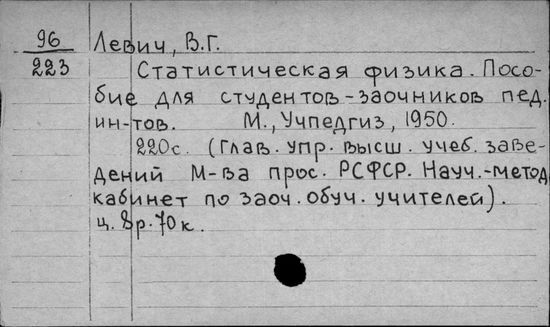 96 Левич, В.Г.
223 Статистическая физика. Посо-
бие для студентов-заочников пед.
ин-тов. М., Учпедгиз, 1950.
220с. (Глав. упр. высш. учеб. заве-
дений М-ва прос. РСФСР. Науч.-метод.
кабинет по заоч. обуч. учителей).
ц. 8р.70к.